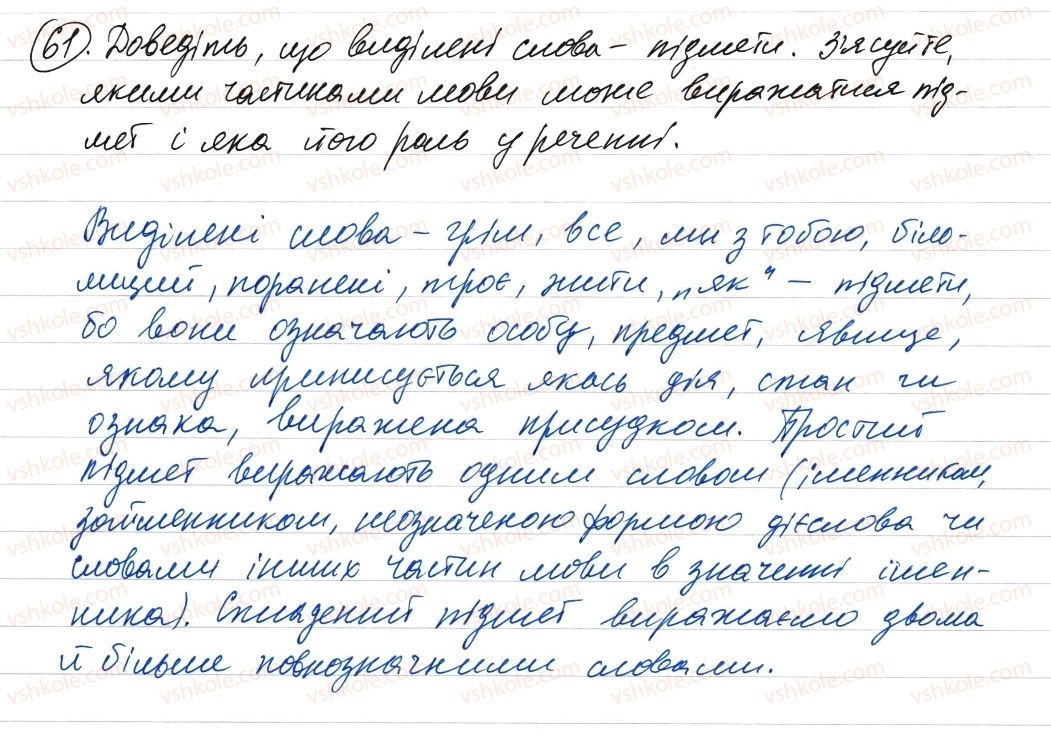 61. Доведіть, що виділені слова – підмети. З'ясуйте,
якими частинами мови може виражатися під-
мет і яка його роль у реченні.
Виділені слова – грім, все, ми з тобою, біло-
лиций, поранені, троє, жити, „як“ – підмети,
бо вони означають особу, предмет, явище,
якому приписується якась дія, стан чи
ознака, виражена присудком. Простий
підмет виражають одним словом (іменником,
займенником, неозначеною формою дієслова чи
словами інших частин мови в значенні імен-
ника). Складений підмет виражаємо двома
й більше повнозначними словами.